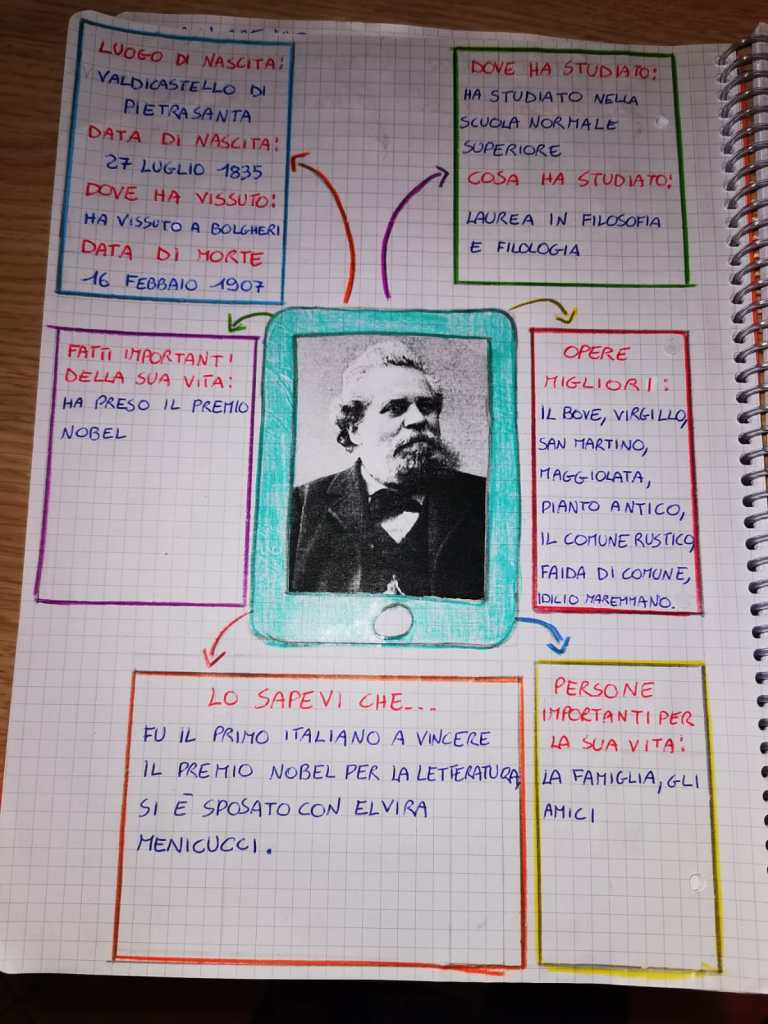 LUOGO DI NASCITA:
VALDICASTELLO DI
PIETRASANTA
DATA DI NASCITA:
27 LUGLIO 1835
DOVE HA VISSUTO:
HA VISSUTO A BOLGHERI
DATA DI MORTE
16 FEBBAIO 1907
DOVE HA STUDIATO:
HA STUDIATO NELLA
SCUOLA NORMALE
SUPERIORE
COSA HA STUDIATO:
LAUREA IN FILOSOFIA
E FILOLOGIA
FATTI IMPORTANTI
DELLA SUA VITA:
HA PRESO IL PREMIO
NOBEL
OPERE
MIGLIORI:
IL BOVE, VIRGILLO,
SAN MARTINO,
MAGGIOLATA,
PIANTO ANTICO,
IL COMUNE RUSTICO,
FAIDA DI COMUNE,
IDILIO MAREMMANO.
LO SAPEVI CHE...
FU IL PRIMO ITALIANO A VINCERE
IL PREMIO NOBEL PER LA LETTERATURA,
SI È SPOSATO CON ELVIRA
MENICUCCI.
PERSONE
IMPORTANTI PER
LA SUA VITA:
LA FAMIGLIA, GLI
AMICI